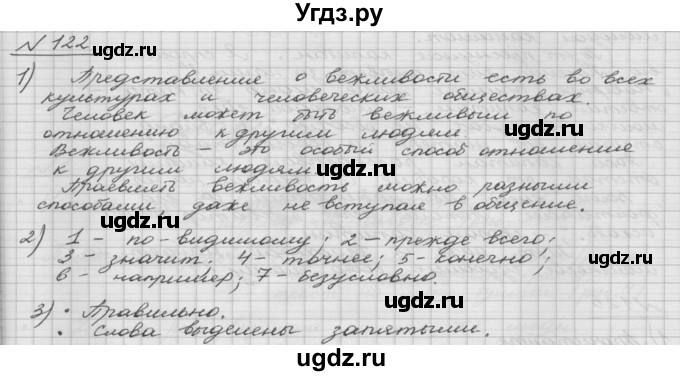 Угдз.ру
№ 122
1) Представление о вежливости есть во всех
культурах и человеческих обществах.
Человек может быть вежливым по
отношению к другим людям.
Вежливость – это особый способ отношение
к другим людям
Проявлять вежливость можно разными
способами, даже не вступая в общение.
2) 1 – по-видимому; 2 – прежде всего;
3 – значит. 4 – точнее; 5 – конечно;
6 – например; 7 – безусловно.
3) • Правильно.
• Слова выделены запятыми.
ugdz.ru
ugdz.ru
ugdz.ru
ugdz.ru
ugdz.ru
ugdz.ru
ugdz.ru
ugdz.ru
ugdz.ru
ugdz.ru
ugdz.ru
ugdz.ru